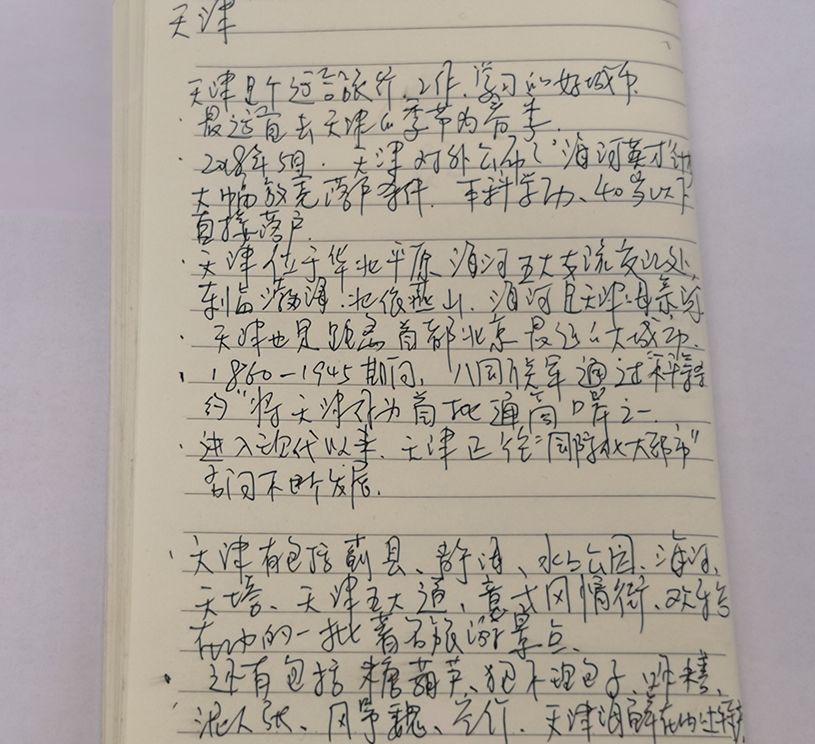 天津
天津是个适合旅行、工作、学习的好城市.
· 最适宜去天津的季节为春季.
· 2018年5月. 天津对外公布了"海河英才"
大幅放宽落户条件. 本科学历、40岁以下
直接落户.
· 天津位于华北平原海河五大支流交汇处,
东临渤海.北依燕山.海河是天津母亲河
· 天津也是距离首都北京最近的大城市.
· 1860-1945期间, 八国联军通过
约"将天津作为首批通商口岸之一
· 进入现代以来. 天津正往"国际化大都市"
方向不断发展.
· 天津有包括蓟县、静海、水上公园、海河、
天塔、天津五大道、意式风情街、
在内的一批著名旅游景点.
· 还有包括糖葫芦、狗不理包子、
泥人张、风筝魏、 天津海鲜在内